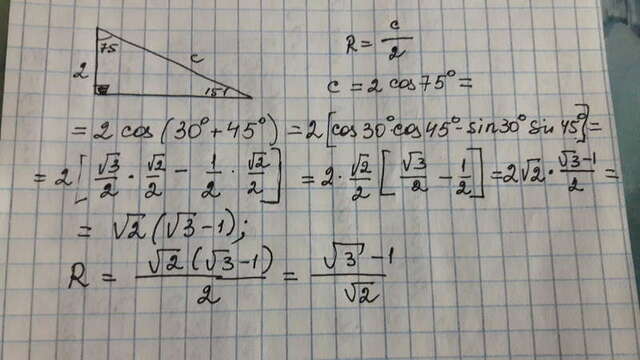 75
2
c
15°
R = c/2
c = 2 cos 75° =
= 2 cos(30° + 45°) = 2[cos30° cos45° - sin30° sin45°] =
= 2[√3/2 · √2/2 - 1/2 · √2/2] = 2 · √2/2 [√3/2 - 1/2] = 2√2 · (√3-1)/2 =
= √2(√3-1);
R = √2(√3-1)/2 = (√3-1)/√2